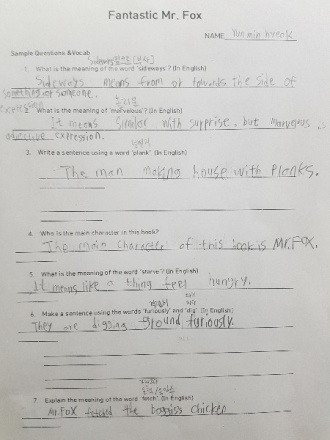 Fantastic Mr. Fox
NAME Yun min hyeok
Sample Questions & Vocab
Sideways
1. What is the meaning of the word 'sideways'? (In English)
Sideways means from or towards the side of
something or someone.
2. What is the meaning of 'marvelous'? (In English)
It means similar with supprise, but
expression.
3. Write a sentence using the word 'plank'. (In English)
The man making house with Planks.
4. Who is the main character in this book?
The main character of this book is Mr.FOX.
5. What is the meaning of the word 'starve'? (In English)
It means like a thing feel hungry.
6. Make a sentence using the words 'furiously' and 'dig'. (In English)
They are digging ground furiously.
7. Explain the meaning of the word 'fetch'. (In English)
Mr.FOX fetched the chicken